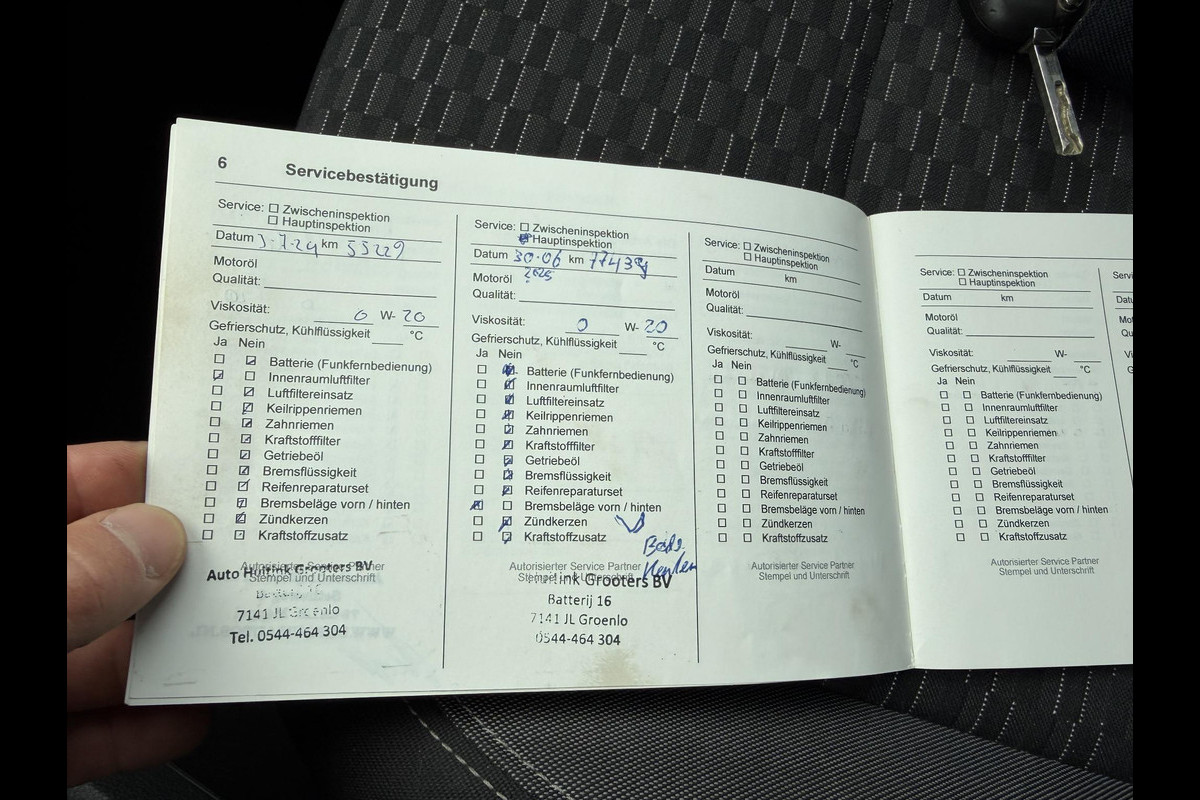 6 Servicebestätigung
Service: ☐ Zwischeninspektion
☐ Hauptinspektion
Datum 3-7-24 km 55229
Motoröl
Qualität:
Viskosität: 0 W- 20
Gefrierschutz, Kühlflüssigkeit °C
Ja Nein
Batterie (Funkfernbedienung)
Innenraumluftfilter
Luftfiltereinsatz
Keilrippenriemen
Zahnriemen
Kraftstofffilter
Getriebeöl
Bremsflüssigkeit
Reifenreparaturset
Bremsbeläge vorn / hinten
Zündkerzen
Kraftstoffzusatz
Autorisierter Service Partner
Stempel und Unterschrift
Auto Grooters BV
7141 JL Groenlo
Tel. 0544-464 304
Service: ☐ Zwischeninspektion
Hauptinspektion
Datum 30-06 km
2025
Motoröl
Qualität:
Viskosität: 0 W- 20
Gefrierschutz, Kühlflüssigkeit °C
Ja Nein
Batterie (Funkfernbedienung)
Innenraumluftfilter
Luftfiltereinsatz
Keilrippenriemen
Zahnriemen
Kraftstofffilter
Getriebeöl
Bremsflüssigkeit
Reifenreparaturset
Bremsbeläge vorn / hinten
Zündkerzen
Kraftstoffzusatz
Autorisierter Service Partner
Stempel und Unterschrift
Grooters BV
Batterij 16
7141 JL Groenlo
0544-464 304
Service: ☐ Zwischeninspektion
☐ Hauptinspektion
Datum km
Motoröl
Qualität:
Viskosität: W-
Gefrierschutz, Kühlflüssigkeit °C
Ja Nein
Batterie (Funkfernbedienung)
Innenraumluftfilter
Luftfiltereinsatz
Keilrippenriemen
Zahnriemen
Kraftstofffilter
Getriebeöl
Bremsflüssigkeit
Reifenreparaturset
Bremsbeläge vorn / hinten
Zündkerzen
Kraftstoffzusatz
Autorisierter Service Partner
Stempel und Unterschrift
Service: ☐ Zwischeninspektion
☐ Hauptinspektion
Datum km
Motoröl
Qualität:
Viskosität: W-
Gefrierschutz, Kühlflüssigkeit °C
Ja Nein
Batterie (Funkfernbedienung)
Innenraumluftfilter
Luftfiltereinsatz
Keilrippenriemen
Zahnriemen
Kraftstofffilter
Getriebeöl
Bremsflüssigkeit
Reifenreparaturset
Bremsbeläge vorn / hinten
Zündkerzen
Kraftstoffzusatz
Autorisierter Service Partner
Stempel und Unterschrift